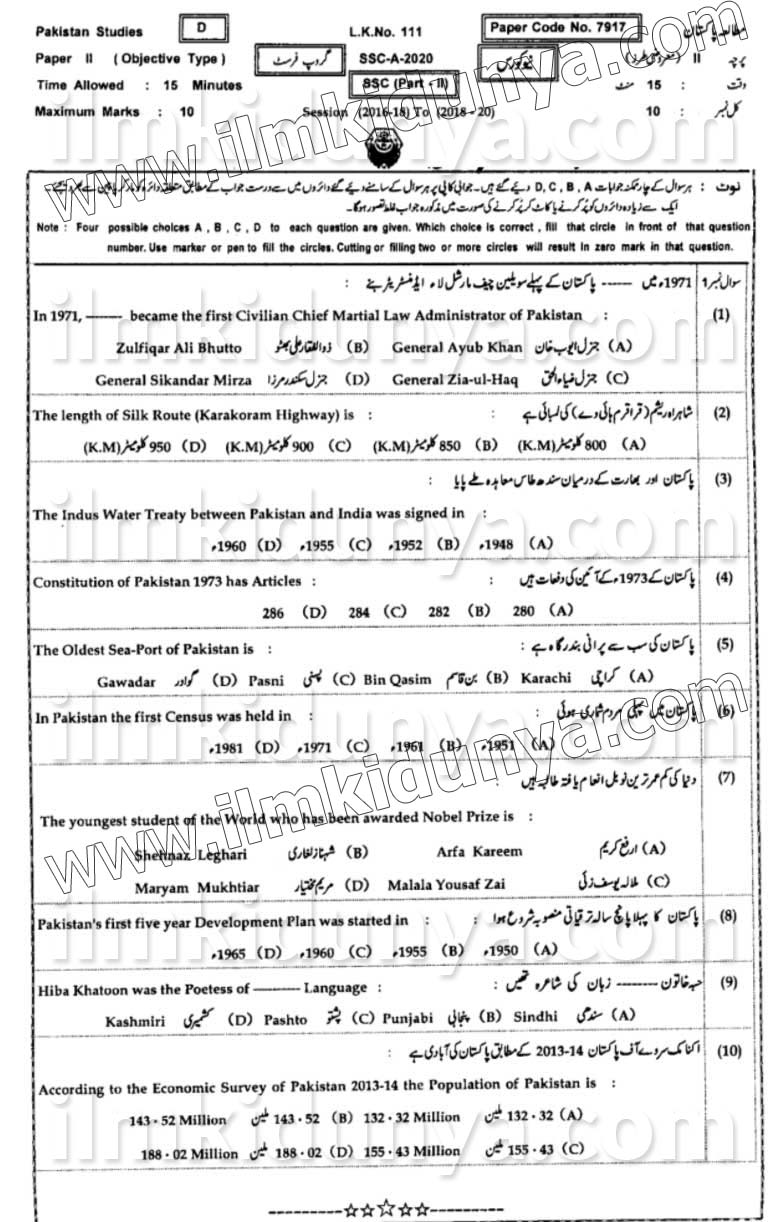 Pakistan Studies D L.K.No. 111 Paper Code No. 7917 مطالعہ پاکستان
Paper II ( Objective Type ) گروپ فرسٹ SSC-A-2020 پرچہ II
Time Allowed : 15 Minutes SSC (Part - II) وقت : 15 منٹ
Maximum Marks : 10 Session (2016-18) To (2018-20) کل نمبر : 10
نوٹ : ہر سوال کے چار ممکنہ جوابات D, C, B, A دیے گئے ہیں۔ جوابی کاپی پر ہر سوال کے سامنے دیے گئے دائروں میں سے درست جواب کے مطابق متعلقہ دائرہ کو مارکر یا پین سے بھر دیجئے۔
ایک سے زیادہ دائروں کو پُر کرنے یا کاٹ کر پُر کرنے کی صورت میں مذکورہ جواب غلط تصور ہوگا۔
Note : Four possible choices A , B , C , D to each question are given. Which choice is correct , fill that circle in front of that question
number. Use marker or pen to fill the circles. Cutting or filling two or more circles will result in zero mark in that question.
سوال نمبر 1 1971ء میں ------ پاکستان کے پہلے سویلین چیف مارشل لاء ایڈمنسٹریٹر بنے :
In 1971, ——— became the first Civilian Chief Martial Law Administrator of Pakistan : (1)
Zulfiqar Ali Bhutto ذوالفقار علی بھٹو (B) General Ayub Khan جنرل ایوب خان (A)
General Sikandar Mirza جنرل سکندر مرزا (D) General Zia-ul-Haq جنرل ضیاء الحق (C)
The length of Silk Route (Karakoram Highway) is : شاہراہ ریشم (قراقرم ہائی وے) کی لمبائی ہے : (2)
(K.M) کلومیٹر 950 (D) (K.M) کلومیٹر 900 (C) (K.M) کلومیٹر 850 (B) (K.M) کلومیٹر 800 (A)
پاکستان اور بھارت کے درمیان سندھ طاس معاہدہ طے پایا : (3)
The Indus Water Treaty between Pakistan and India was signed in :
1960ء (D) 1955ء (C) 1952ء (B) 1948ء (A)
Constitution of Pakistan 1973 has Articles : پاکستان کے 1973ء کے آئین کی دفعات ہیں : (4)
286 (D) 284 (C) 282 (B) 280 (A)
The Oldest Sea-Port of Pakistan is : پاکستان کی سب سے پرانی بندرگاہ ہے : (5)
Gawadar گوادر (D) Pasni پسنی (C) Bin Qasim بن قاسم (B) Karachi کراچی (A)
In Pakistan the first Census was held in : پاکستان میں پہلی مردم شماری ہوئی : (6)
1981ء (D) 1971ء (C) 1961ء (B) 1951ء (A)
دنیا کی کم عمر ترین نوبل انعام یافتہ طالبہ ہیں : (7)
The youngest student of the World who has been awarded Nobel Prize is :
Shehnaz Leghari شہناز لغاری (B) Arfa Kareem ارفع کریم (A)
Maryam Mukhtiar مریم مختیار (D) Malala Yousaf Zai ملالہ یوسف زئی (C)
Pakistan's first five year Development Plan was started in : پاکستان کا پہلا پانچ سالہ ترقیاتی منصوبہ شروع ہوا : (8)
1965ء (D) 1960ء (C) 1955ء (B) 1950ء (A)
Hiba Khatoon was the Poetess of ——— Language : حبہ خاتون -------- زبان کی شاعرہ تھیں : (9)
Kashmiri کشمیری (D) Pashto پشتو (C) Punjabi پنجابی (B) Sindhi سندھی (A)
اکنامک سروے آف پاکستان 2013-14 کے مطابق پاکستان کی آبادی ہے : (10)
According to the Economic Survey of Pakistan 2013-14 the Population of Pakistan is :
143.52 Million ملین 143.52 (B) 132.32 Million ملین 132.32 (A)
188.02 Million ملین 188.02 (D) 155.43 Million ملین 155.43 (C)
---------☆☆☆☆☆---------
www.ilmkidunya.com
www.ilmkidunya.com
ilmkidunya.com
ilmkidunya.com
ilmkidunya.com
ilmkidunya.com
ilmkidunya.com